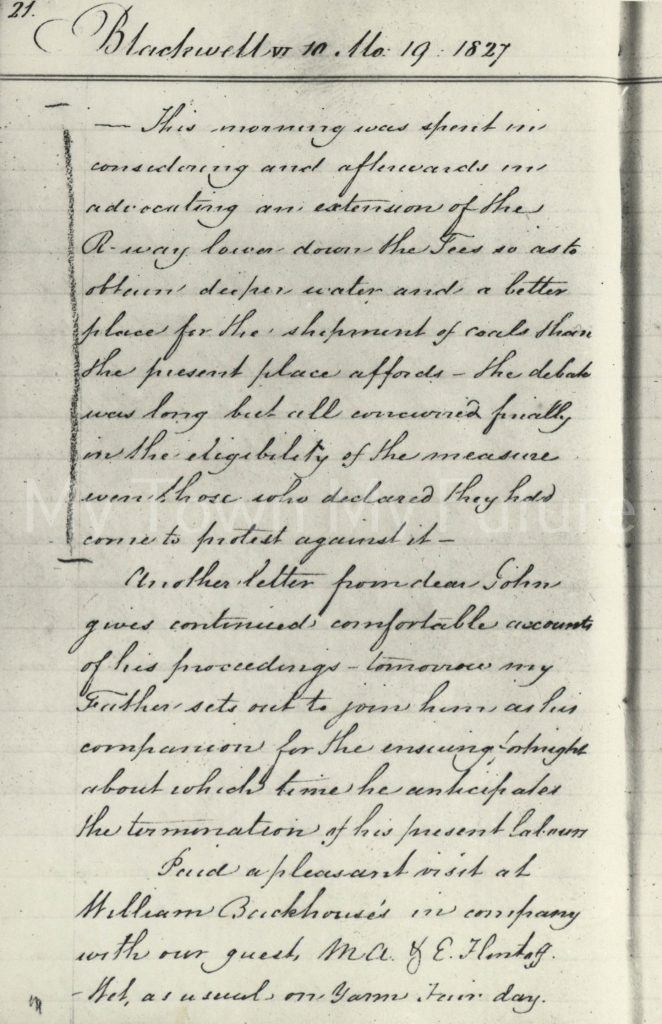 21.
Blackwell VI 10 Mo. 19. 1827
— This morning was spent in
considering and afterwards in
advocating an extension of the
R-way lower down the Tees so as to
obtain deeper water and a better
place for the shipment of coals than
the present place affords – the debate
was long but all concurred finally
in the eligibility of the measure
even those who declared they had
come to protest against it –
Another letter from dear John
gives continued comfortable accounts
of his proceedings – tomorrow my
Father sets out to join him as his
companion for the ensuing fortnight
about which time he anticipates
the termination of his present labours
Paid a pleasant visit at
William Backhouse's in company
with our guests M A. & E. Flintoff.
– Wet, as usual on Yarm Fair day.
My Town My Future